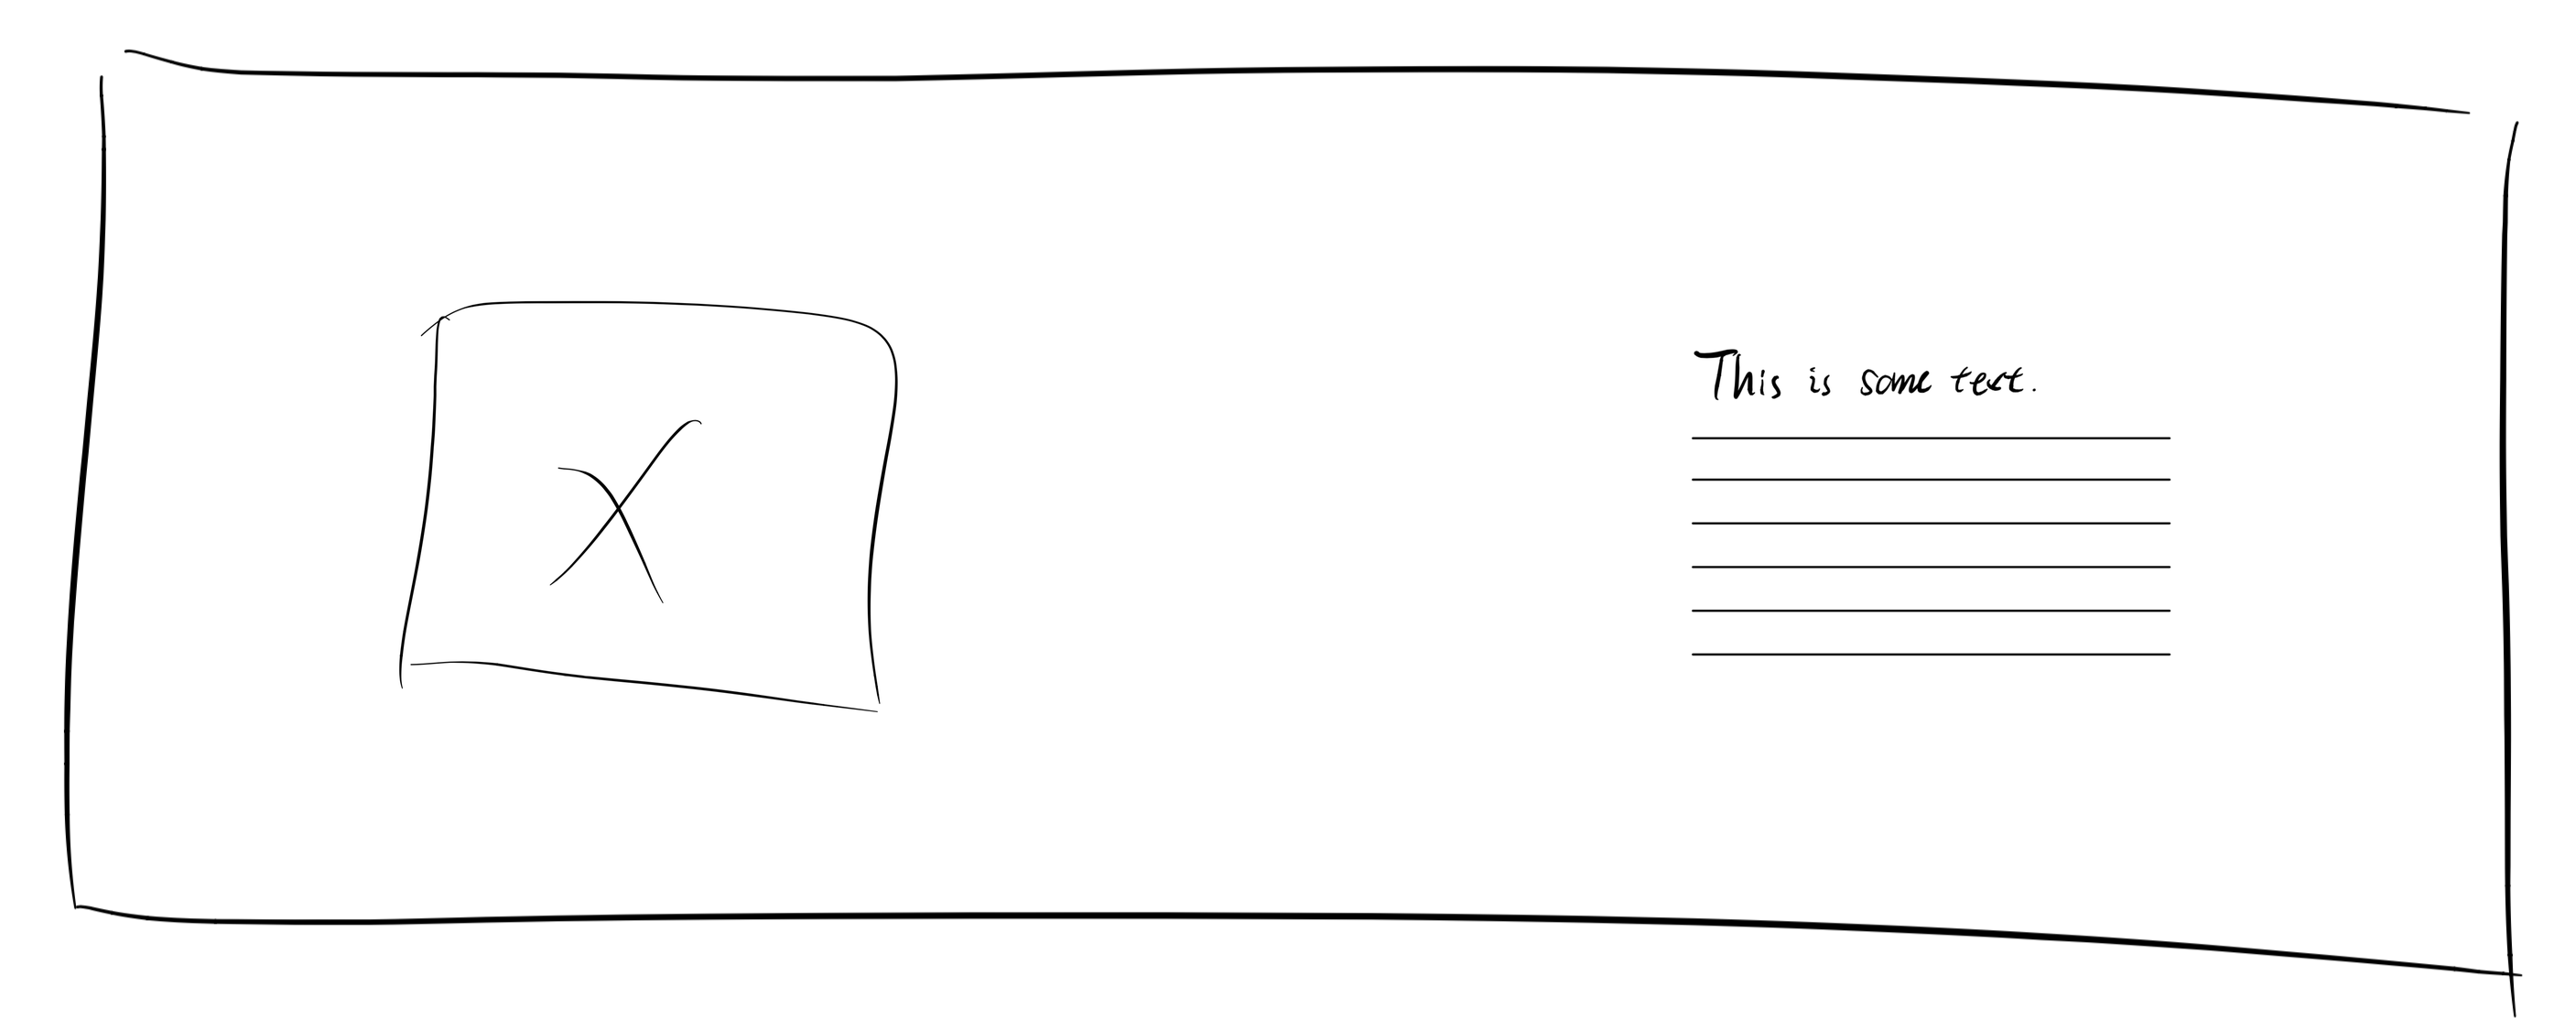 This is some text.